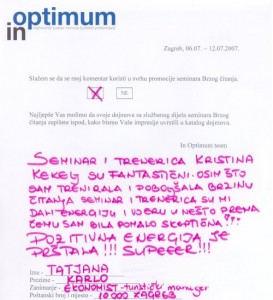 in optimum
Zagreb, 06.07. – 12.07.2007.
Slažem se da se moj komentar koristi u svrhu promocije seminara Brzog čitanja.
NE
Najljepše Vas molimo da svoje dojmove sa službenog dijela seminara Brzog
čitanja zapišete ispod, kako bismo Vaše impresije uvrstili u katalog dojmova.
In Optimum team
SEMINAR I TRENERICA KRISTINA
KEKELJ SU FANTASTIČNI. OSIM ŠTO
SAM TRENIRALA I POBOLJŠALA BRZINU
ČITANJA SEMINAR I TRENERICA SU MI
DALI ENERGIJU I VJERU U NEŠTO PREMA
ČEMU SAM BILA POMALO SKEPTIČNA!!!
POZITIVNA ENERGIJA JE
PRŠTALA!!! SUPEEER!!!
Ime - TATJANA
Prezime - KARLO
Zanimanje - EKONOMIST - turistički manager
Poštanski broj i mjesto - 10 000 ZAGREB